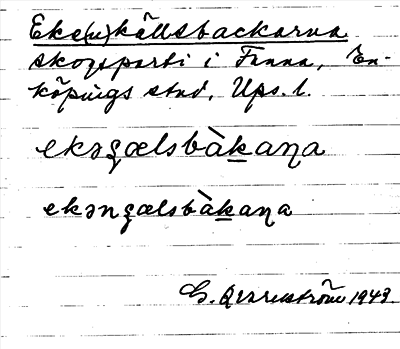 Eke(n)källsbackarna
skogsparti i Fanna, En-
köpings stad, Ups. l.
ekəȿælsbàk̲aꞃa
ekənȿælsbàk̲aꞃa
1943.